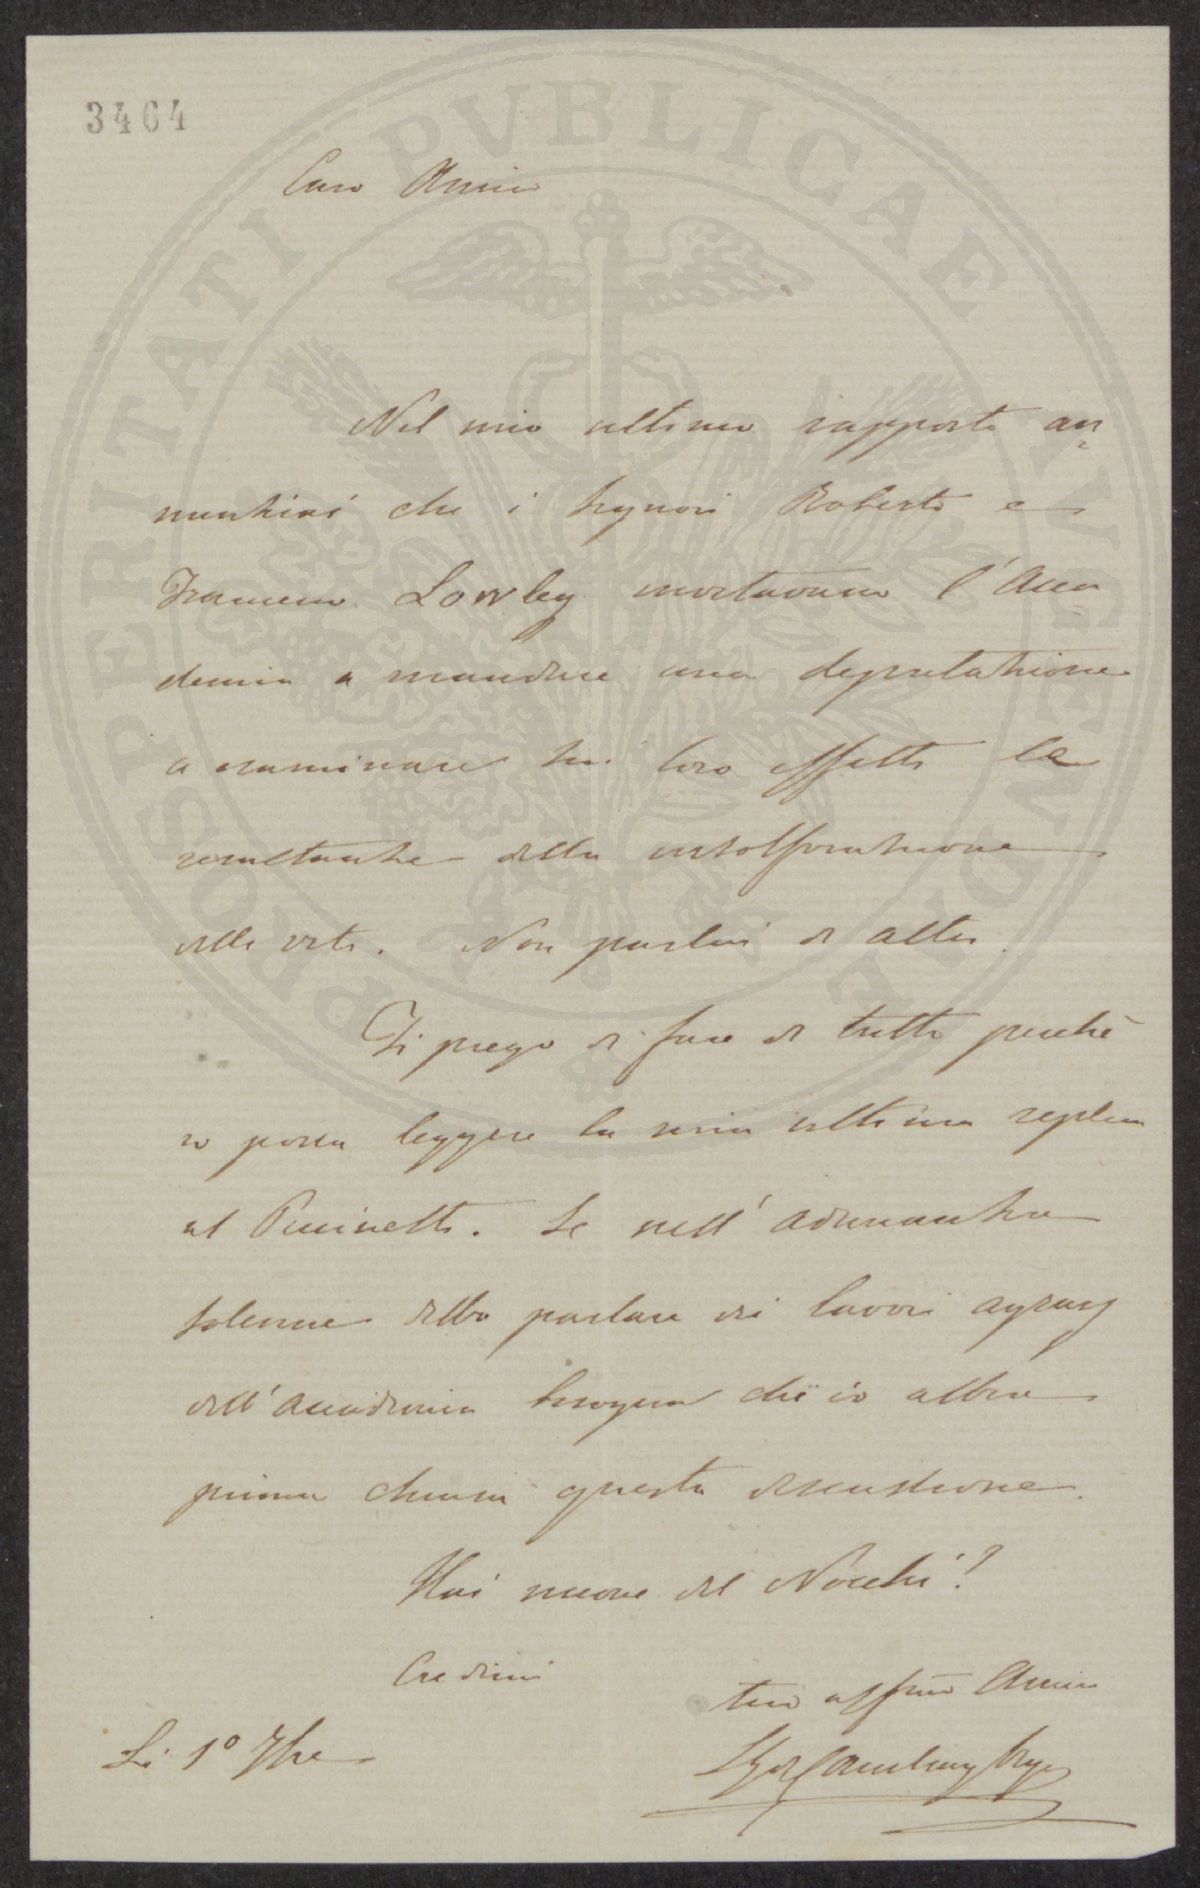 3464
PROSPERITATI PVBLICAE AVGENDAE
Caro Amico
Nel mio ultimo rapporto an
nunziai che i signori Roberto e
Francesco Lowley invitavano l'Acca
demia a mandare una deputazione
a esaminare sui loro effetti le
resultanze della insolforazione
delle viti. Non parlai di altro.
Ti prego di fare di tutto perché
io possa leggere la mia ultima replica
al Puccinelli. Se nell'adunanza
solenne debbo parlare dei lavori agrarj
dell'Accademia bisogna che io abbia
prima chiusa questa discussione.
Hai nuove del Nocchi?
Credimi
tuo affmo Amico
Li 1° 7bre